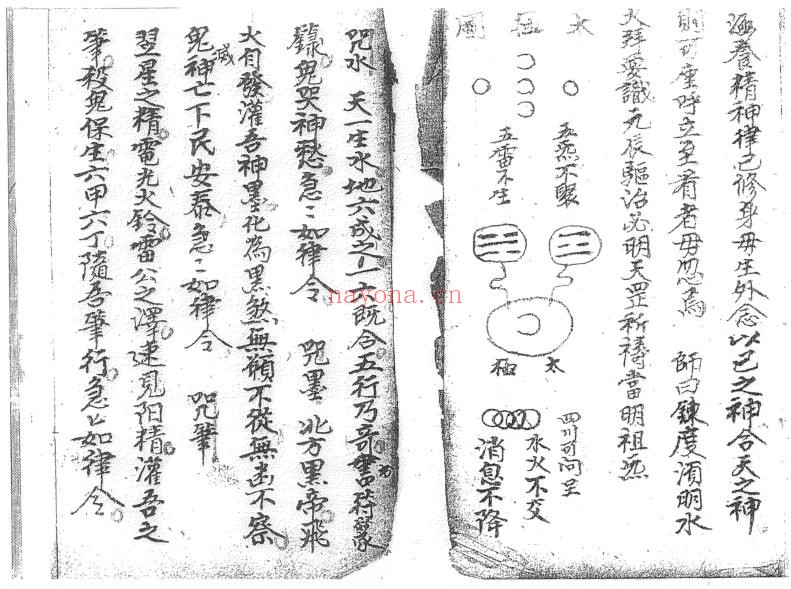 涵養精神律己修身毋生外念以己之神合天之神
則可坐呼立至看者毋忽焉　師曰鍊度須明水
火拜要識元辰驅治必明天罡祈禱當明祖炁
太極圖
五炁不聚
五雷不生
太極
水火不交
消息不降
咒水　天一生水地六成之一六既合五行乃奇書符篆
籙鬼哭神愁急〻如律令　咒墨　北方黑帝飛
火自發灌吾神墨化為黑煞無願不從無幽不察
鬼神滅亡下民安泰急〻如律令　咒筆
翌星之精電光火鈴雷公之澤速見陽精灌吾之
筆殺鬼保生六甲六丁隨吾筆行急〻如律令
nayona.cn